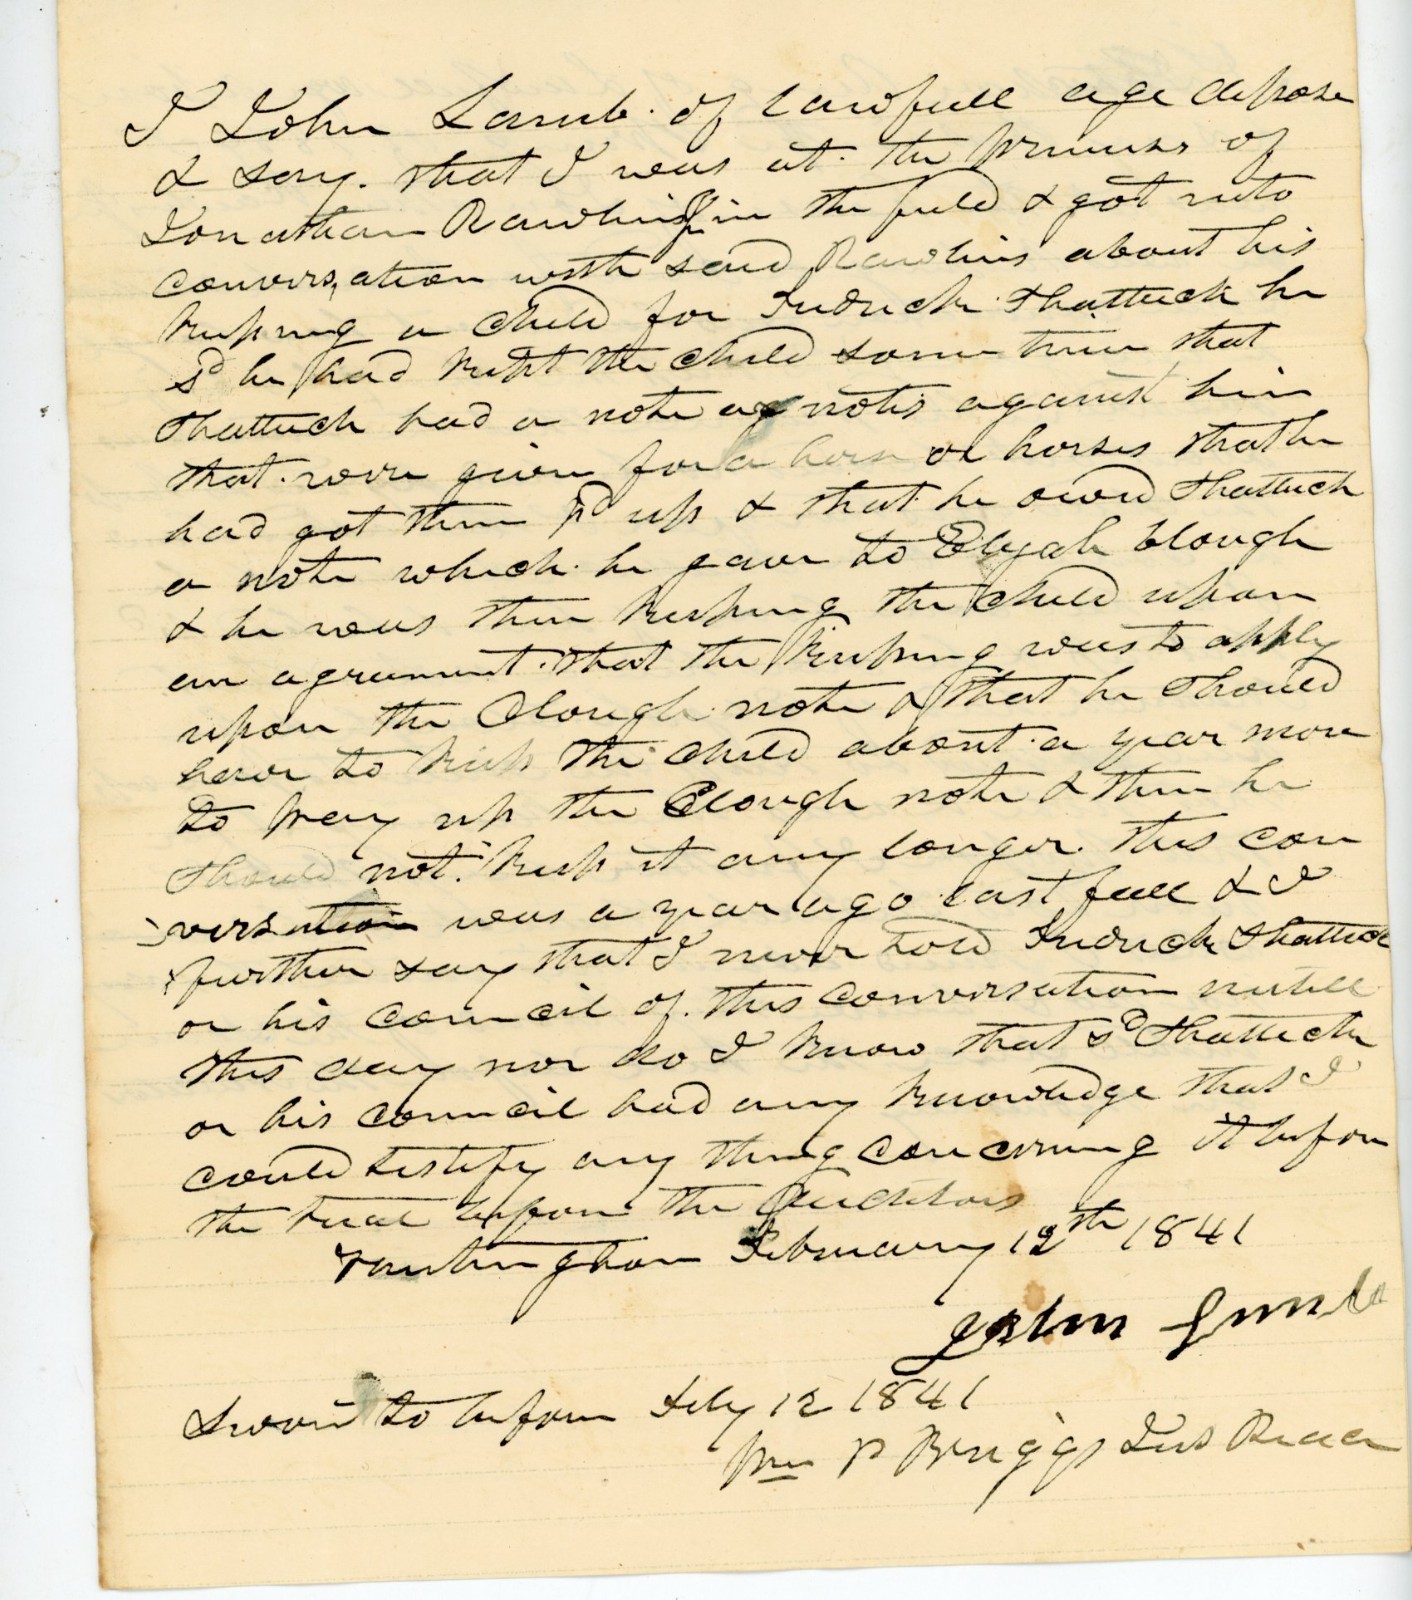 I John Lamb of lawfull age depose
& say. that I was at the premises of
Jonathan Rawlins in the field & got into
conversation with said Rawlins about his
keeping a child for Fredrick Shattuck he
sd he had kept the child some time that
Shattuck had a note or notes against him
that were given for a horse or horses that he
had got them pd up & that he owed Shattuck
a note which he gave to Elijah Clough
& he was then keeping the child upon
an agreement that the keeping was to apply
upon the Clough note & that he should
have to keep the child about a year more
to pay up the Clough note & then he
should not keep it any longer. This con
versation was a year ago last fall & I
further say that I never told Fredrick Shattuck
or his council of this conversation untill
this day nor do I know that sd Shattuck
or his council had any knowledge that I
could testify any thing concerning it before
the trial before the Auditors
Huntington February 12th 1841
John Lamb
Sworn to before Feby 12 1841
Wm P Briggs Jus Peace